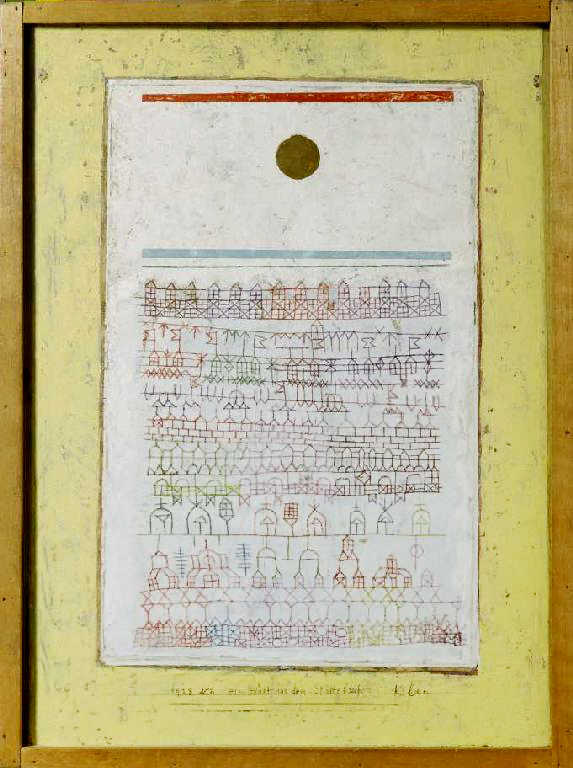 1928 ein Blatt aus dem Städtebuch Klee